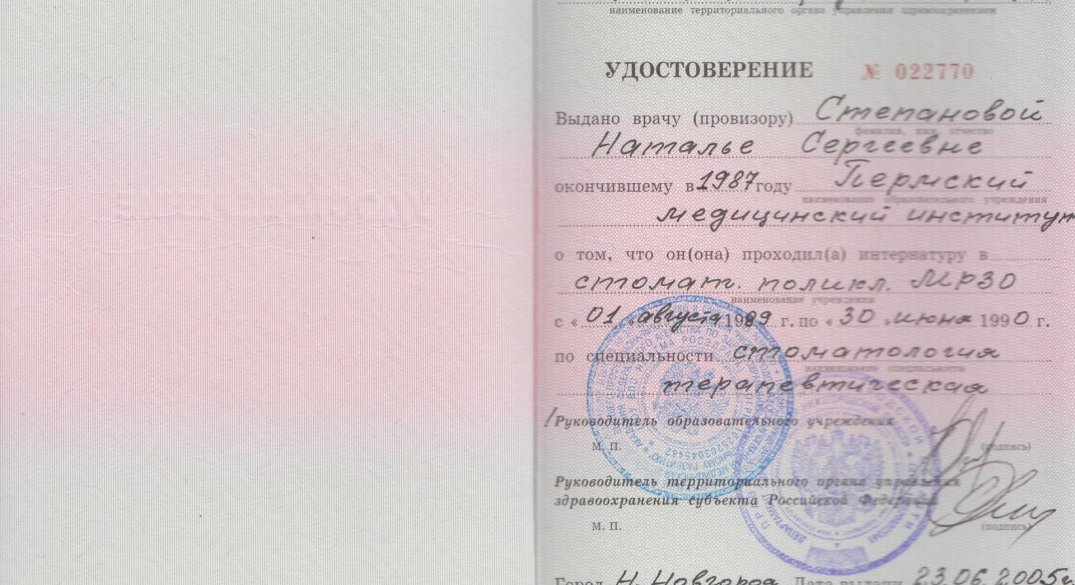 наименование территориального органа управления здравоохранением
УДОСТОВЕРЕНИЕ № 022770
Выдано врачу (провизору) Степановой
фамилия, имя, отчество
Наталье Сергеевне
окончившему в 1987 году Пермский
наименование образовательного учреждения
медицинский институт
о том, что он(она) проходил(а) интернатуру в
стомат. поликл. МРЗО
наименование учреждения
с «01» августа 1989 г. по «30» июня 1990 г.
по специальности стоматология
наименование специальности
терапевтическая
Руководитель образовательного учреждения
М. П. (подпись)
Руководитель территориального органа управления
здравоохранения субъекта Российской Федерации
М. П. (подпись)
Город Н. Новгород Дата выдачи 23.06.2005г